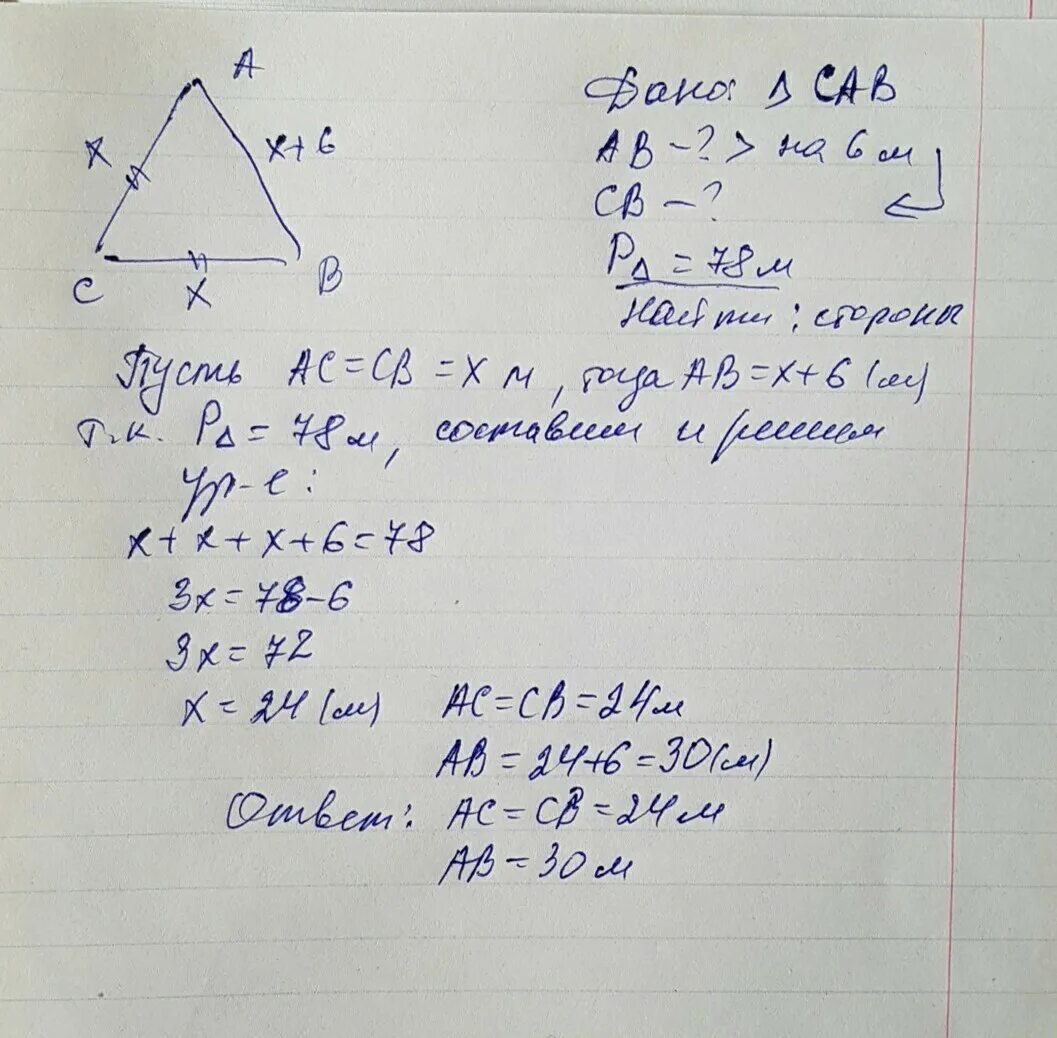 A
x
x+6
C
x
B
Дано: Δ CAB
AB -? > на 6 м
CB -?
PΔ = 78 м
Найти: стороны
Пусть AC = CB = x м, тогда AB = x + 6 (м)
т.к. PΔ = 78 м, составим и решим
ур-е:
x + x + x + 6 = 78
3x = 78 - 6
3x = 72
x = 24 (м)
AC = CB = 24 м
AB = 24 + 6 = 30 (м)
Ответ: AC = CB = 24 м
AB = 30 м